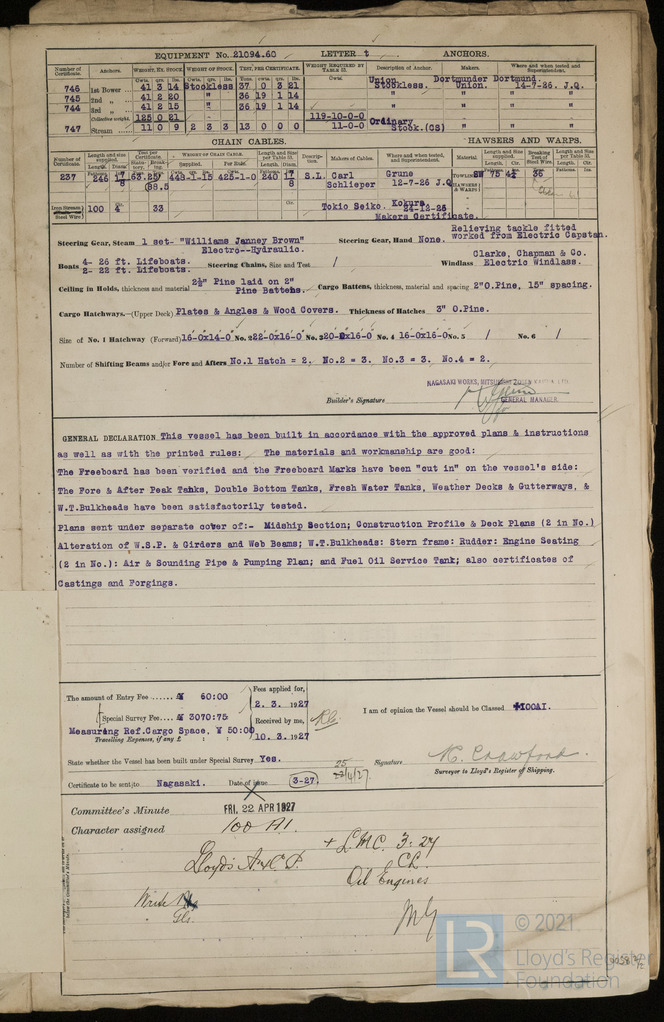 EQUIPMENT No. 21094.60 LETTER t ANCHORS.
Number of Certificate. Anchors. WEIGHT, EX. STOCK. WEIGHT OF STOCK. TEST, PER CERTIFICATE. WEIGHT REQUIRED BY TABLE 53. Description of Anchor. Makers. Where and when tested and Superintendent.
Cwts. qrs. lbs. Cwts. qrs. lbs. Tons. Cwts. qrs. lbs. Cwts.
746 1st Bower 41 3 14 Stockless 37 0 3 21 Union Stockless. Dortmunder Union. Dortmund. 14-7-26. J.Q.
745 2nd „ 41 2 20 " 36 19 1 14 " " "
744 3rd „ 41 2 15 " 36 19 1 14 " " "
Collective weight. 125 0 21 119-10-0-0
747 Stream 11 0 9 2 3 3 13 0 0 0 11-0-0 Ordinary Stock.(CS) " "
CHAIN CABLES. HAWSERS AND WARPS.
237 240 63.25 88.5 448-1-15 425-1-0 240 S.L. Carl Schlieper Grune 12-7-26 J.Q.
TOWLINE SW 75 4½ 36
HAWSERS & WARPS
Iron Stream Steel Wire 100 4" 33 Tokio Seiko. Kokura 24-12-25
Makers Certificate.
Steering Gear, Steam 1 set- "Williams Janney Brown" Steering Gear, Hand None. Relieving tackle fitted
Electro-Hydraulic. worked from Electric Capstan.
Boats 4- 26 ft. Lifeboats. Steering Chains, Size and Test / Windlass Clarke, Chapman & Co.
2- 22 ft. Lifeboats. Electric Windlass.
Ceiling in Holds, thickness and material 2½" Pine laid on 2" Cargo Battens, thickness, material and spacing 2"O.Pine, 15" spacing.
Pine Battens.
Cargo Hatchways.—(Upper Deck) Plates & Angles & Wood Covers. Thickness of Hatches 3" O.Pine.
Size of No. 1 Hatchway (Forward) 16-0x14-0" No. 2 22-0x16-0" No. 3 20-0x16-0" No. 4 16-0x16-0 No. 5 / No. 6 /
Number of Shifting Beams and/or Fore and Afters No.1 Hatch = 2. No.2 = 3. No.3 = 3. No.4 = 2.
Builder's Signature GENERAL MANAGER.
GENERAL DECLARATION This vessel has been built in accordance with the approved plans & instructions
as well as with the printed rules: The materials and workmanship are good:
The Freeboard has been verified and the Freeboard Marks have been "cut in" on the vessel's side:
The Fore & After Peak Tanks, Double Bottom Tanks, Fresh Water Tanks, Weather Decks & Gutterways, &
W.T.Bulkheads have been satisfactorily tested.
Plans sent under separate cover of:- Midship Section; Construction Profile & Deck Plans (2 in No.)
Alteration of W.S.P. & Girders and Web Beams; W.T.Bulkheads: Stern frame: Rudder: Engine Seating
(2 in No.): Air & Sounding Pipe & Pumping Plan; and Fuel Oil Service Tank; also certificates of
Castings and Forgings.
The amount of Entry Fee ...... ¥ 60:00 Fees applied for,
2. 3. 1927
Special Survey Fee.... ¥ 3070:75 Received by me, I am of opinion the Vessel should be Classed +100A1.
Measuring Ref.Cargo Space, ¥ 50:00
Travelling Expenses, if any £ : : 10. 3. 1927
State whether the Vessel has been built under Special Survey Yes. Signature K. Crawford.
Surveyor to Lloyd's Register of Shipping.
Certificate to be sent to Nagasaki. Date of issue 3-27.
Committee's Minute FRI. 22 APR 1927
Character assigned 100 A1.
Lloyd's A & C P. + LMC 3.27
CL.
Oil Engines
© 2021
Lloyd's Register
Foundation